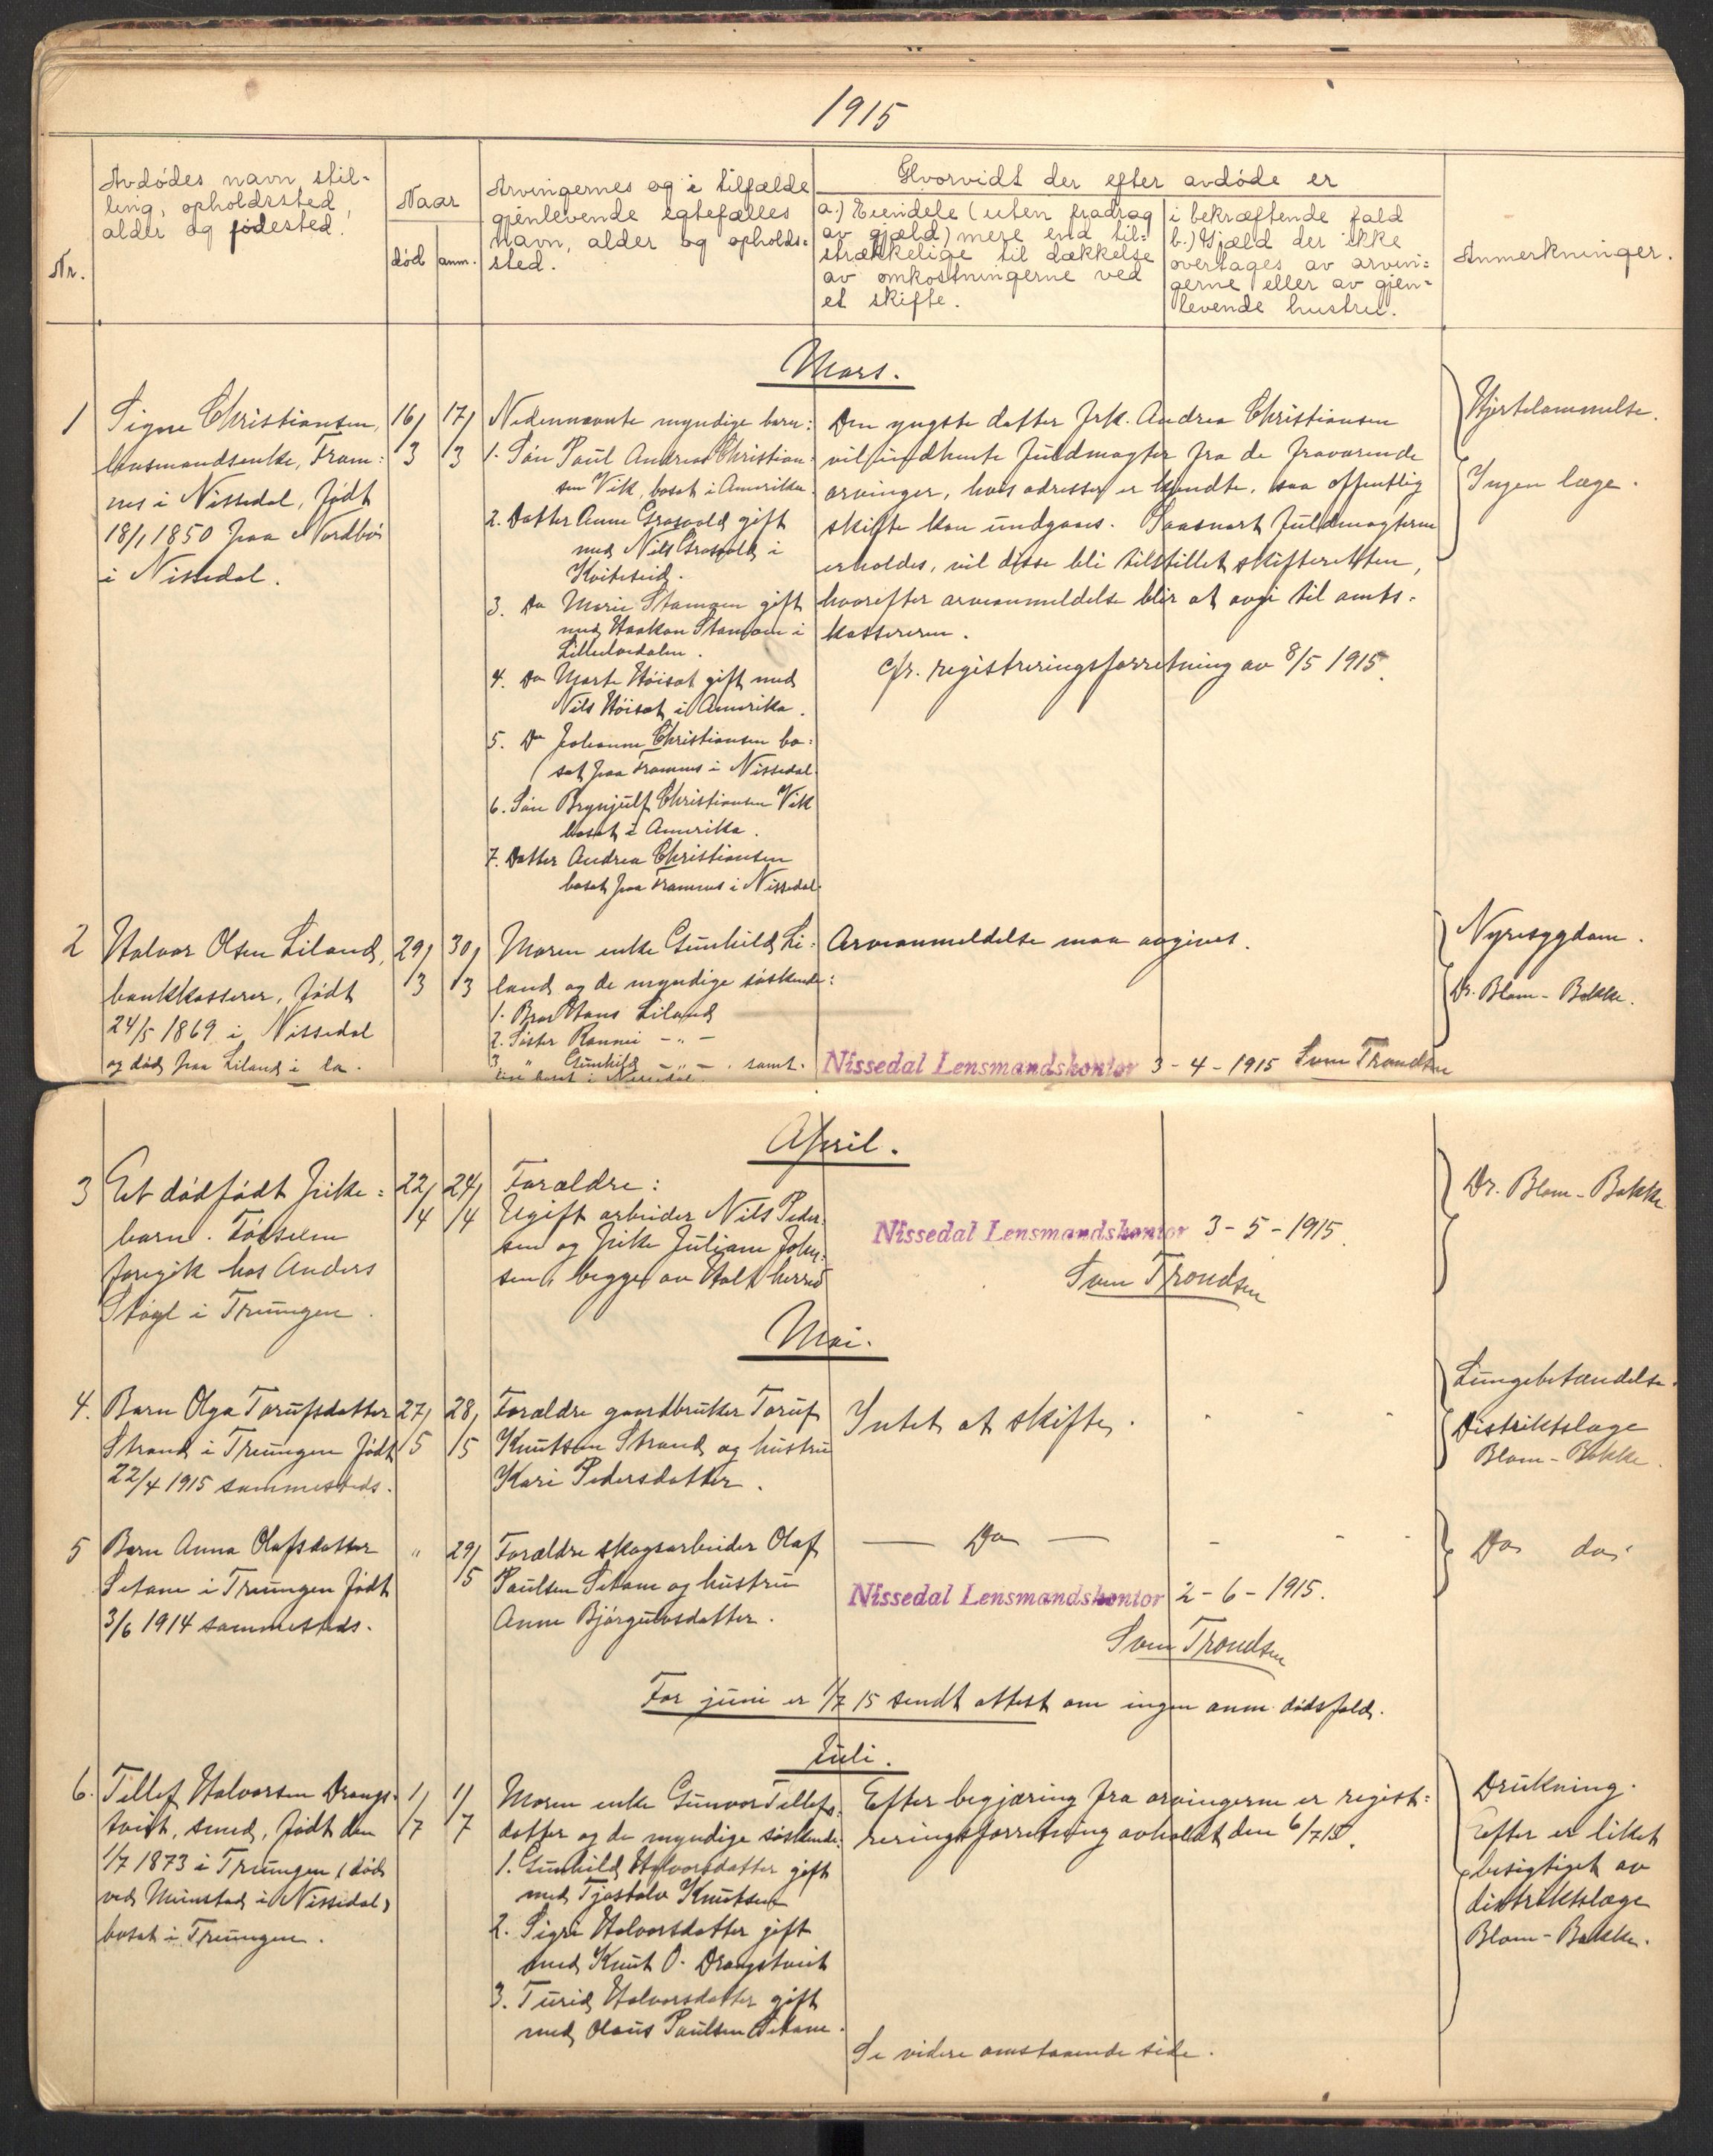 1915
Nr.
Avdødes navn stil-
ling, opholdssted,
alder og fødested.
Naar
død anm.
Arvingernes og i tilfælde
gjenlevende egtefælles
navn, alder og opholds-
sted.
Hvorvidt der efter avdøde er
a.) Eiendele (uten fradrag
av gjæld) mere end til-
strækkelige til dækkelse
av omkostningerne ved
et skifte.
i bekræftende fald
b.) Gjæld der ikke
overtages av arvin-
gerne eller av gjen-
levende hustru.
Anmerkninger.
Mars.
1
Signe Christiansen,
lensmandsenke, Fram-
nes i Nissedal, født
18/1 1850 paa Nordbø
i Nissedal.
16/3
17/3
Nedennævnte myndige barn:
1. Søn Paul Andreas Christian-
sen Vik, bosat i Amerika.
2. Datter Anne Grasvold gift
med Nils Grasvold i
Kviteseid.
3. Do Marie Stamoen gift
med Haakon Stamoen i
Lilleelvedalen.
4. Do Marte Høisæt gift med
Nils Høisæt i Amerika.
5. Do Johanne Christiansen bo-
sat paa Framnes i Nissedal.
6. Søn Brynjulf Christiansen Vik
bosat i Amerika.
7. Datter Andrea Christiansen
bosat paa Framnes i Nissedal.
Den yngste datter frk. Andrea Christiansen
vil indhente fuldmagter fra de fraværende
arvinger, hvis adresser er kjendte, saa offentlig
skifte kan undgaaes. Saasnart fuldmagterne
erholdes, vil disse bli tilstillet skifteretten,
hvorefter arveanmeldelse blir at avgi til amts-
kassereren.
cfr. registreringsforretning av 8/5 1915.
Hjertelammelse.
Ingen læge.
2
Halvor Olsen Liland,
bankkasserer, født
24/5 1869 i Nissedal
og død paa Liland i
29/3
30/3
Moren enke Gunhild Li-
land og de myndige søskende:
1. Bror Hans Liland
2. Søster Rannei - " -
3. " Gunhild - " - . samt.
bosat i Nissedal.
Arveanmeldelse maa avgives.
Nissedal Lensmandskontor 3-4-1915 Sven Trondsen
Nyresygdom.
Dr. Blom-Bakke.
April.
3
Et dødfødt pike-
barn. Fødselen
foregik hos Anders
Støyl i Treungen.
22/4
24/4
Forældre:
Ugift arbeider Nils Peder-
sen og pike Juliane John-
sen, begge av Holt herred
Nissedal Lensmandskontor 3-5-1915.
Sven Trondsen
Dr. Blom-Bakke
Mai.
4.
Barn Olga Torufsdatter
Strand i Treungen født
22/4 1915 sammesteds.
27/5
28/5
Forældre gaardbruker Toruf
Knutsen Strand og hustru
Kari Pedersdatter.
Intet at skifte.
Lungebetændelse.
Distriktslæge
Blom-Bakke.
5
Barn Anna Olafsdatter
Setane i Treungen født
3/6 1914 sammesteds.
"
29/5
Forældre skogsarbeider Olaf
Paulsen Setane og hustru
Anne Bjørgulvsdatter.
— Do —
Nissedal Lensmandskontor 2-6-1915.
Sven Trondsen
Do do.
For juni er 1/7 15 sendt attest om ingen anm. dødsfald.
Juli.
6.
Tellef Halvorsen Drangs-
tveit, smed, født den
1/7 1873 i Treungen (død
ved Heimstad i Nissedal)
bosat i Treungen.
1/7
1/7
Moren enke Gunvor Tellefs-
datter og de myndige søskende:
1. Gunhild Halvorsdatter gift
med Tjøstolv Knutsen
2. Sigri Halvorsdatter gift
med Knut O. Drangstveit
3. Turid Halvorsdatter gift
med Olaus Paulsen Setane.
Efter begjæring fra arvingerne er regist-
reringsforretning avholdt den 6/7 15.
Se videre omstaaende side.
Drukning.
Efter er liket
besigtiget av
distriktslæge
Blom-Bakke.